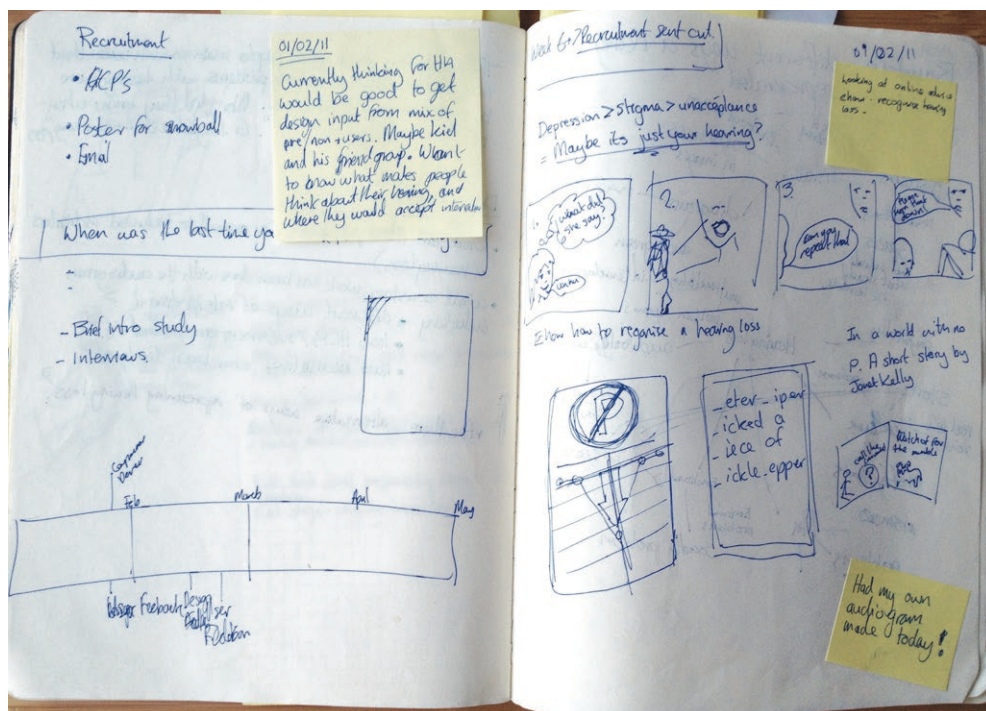 Recruitment
• HCP's
• Poster for snowball
• Email
01/02/11
Currently thinking for HH
would be good to get
design input from mix of
pre/non users. Maybe kid
and his friend group. Want
to know what makes people
think about their hearing, and
where they would accept intervention
When was the last time yo
- Brief intro study
- Interviews
Feb
March
April
May
Feedback
Design
Week 6 > Recruitment sent out!
09/02/11
Looking at online advice
ehow - recognise hearing
loss.
Depression > Stigma > unacceptance
= Maybe its just your hearing?
1.
what did
she say?
2.
3.
can you
repeat that
turn
that
down!
Ehow how to recognise a hearing loss
In a world with no
P. A short story by
Janet Kelly
P
_eter_iper
_icked a
_iece of
_ickle_epper
call the
?
Watched for
the
Had my own
audiogram
made today!